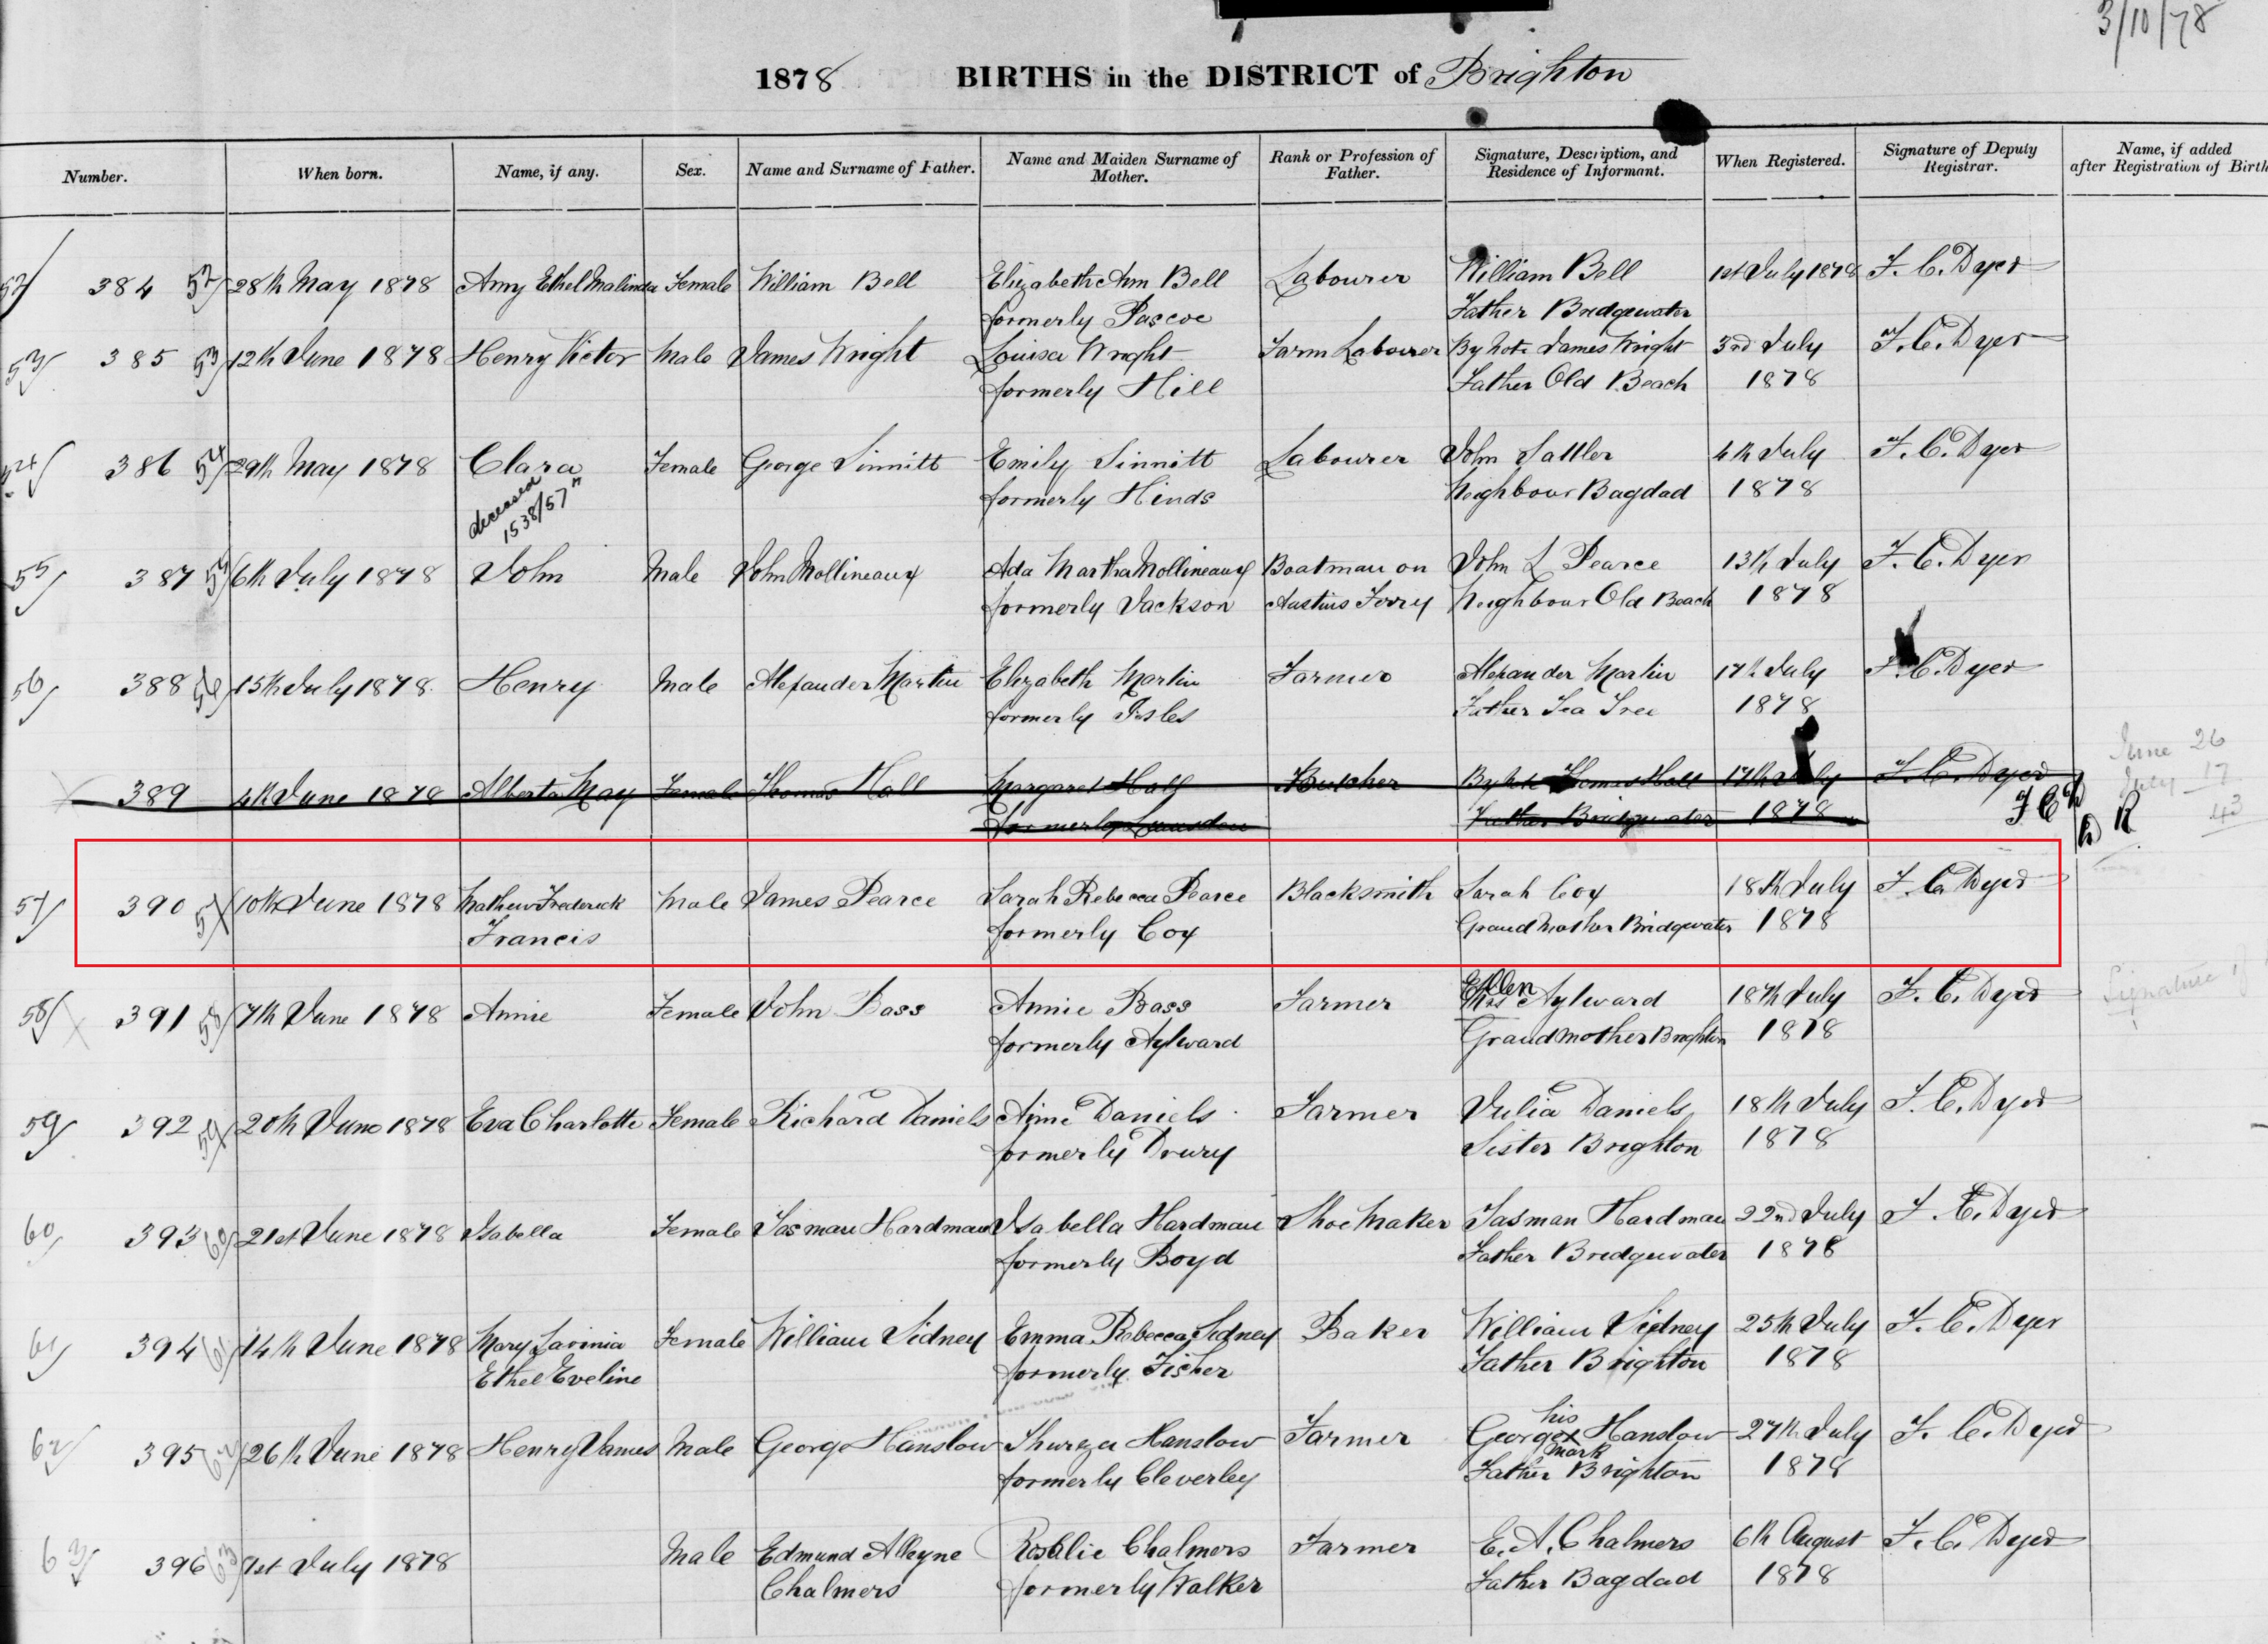 3/10/78
1878 BIRTHS in the DISTRICT of Brighton
Number. When born. Name, if any. Sex. Name and Surname of Father. Name and Maiden Surname of Mother. Rank or Profession of Father. Signature, Description, and Residence of Informant. When Registered. Signature of Deputy Registrar. Name, if added after Registration of Birth
52 384 52 28th May 1878 Amy Ethel Malinda Female William Bell Elizabeth Ann Bell Labourer William Bell 1st July 1878 F. C. Dyer
formerly Pascoe Father Bridgewater
53 385 53 12th June 1878 Henry Victor Male James Wright Louisa Wright Farm Labourer By Note James Wright 3rd July F. C. Dyer
formerly Hill Father Old Beach 1878
54 386 54 29th May 1878 Clara Female George Sinnitt Emily Sinnitt Labourer John Sattler 4th July F. C. Dyer
deceased 1538/57 formerly Hinds Neighbour Bagdad 1878
55 387 55 6th July 1878 John Male John Mollineaux Ada Martha Mollineaux Boatman on John L Pearce 13th July F. C. Dyer
formerly Jackson Austins Ferry Neighbour Old Beach 1878
56 388 56 15th July 1878 Henry Male Alexander Martin Elizabeth Martin Farmer Alexander Martin 17th July F. C. Dyer
formerly Isles Father Tea Tree 1878
389 4th June 1878 Alberta May Female Thomas Hall Margaret Hall Butcher By Note Thomas Hall 17th July F. C. Dyer
formerly Lumsden Father Bridgewater 1878 F C D
June 26
July 17
43
57 390 57 10th June 1878 Mathew Frederick Male James Pearce Sarah Rebecca Pearce Blacksmith Sarah Cox 18th July F. C. Dyer
Francis formerly Cox Grandmother Bridgewater 1878
58 391 58 7th June 1878 Annie Female John Bass Annie Bass Farmer Ellen Aylward 18th July F. C. Dyer
formerly Aylward Grandmother Brighton 1878
Signature of
59 392 59 20th June 1878 Eva Charlotte Female Richard Daniels Aimé Daniels Farmer Julia Daniels 18th July F. C. Dyer
formerly Drury Sister Brighton 1878
60 393 60 21st June 1878 Isabella Female Tasman Hardman Isabella Hardman Shoe Maker Tasman Hardman 22nd July F. C. Dyer
formerly Boyd Father Bridgewater 1878
61 394 61 14th June 1878 Mary Lavinia Female William Sidney Emma Rebecca Sidney Baker William Sidney 25th July F. C. Dyer
Ethel Eveline formerly Fisher Father Brighton 1878
62 395 62 26th June 1878 Henry James Male George Hanslow Thurza Hanslow Farmer George his x mark Hanslow 27th July F. C. Dyer
formerly Cleverley Father Brighton 1878
63 396 63 1st July 1878 Male Edmund Alleyne Rosalie Chalmers Farmer E. A. Chalmers 6th August F. C. Dyer
Chalmers formerly Walker Father Bagdad 1878